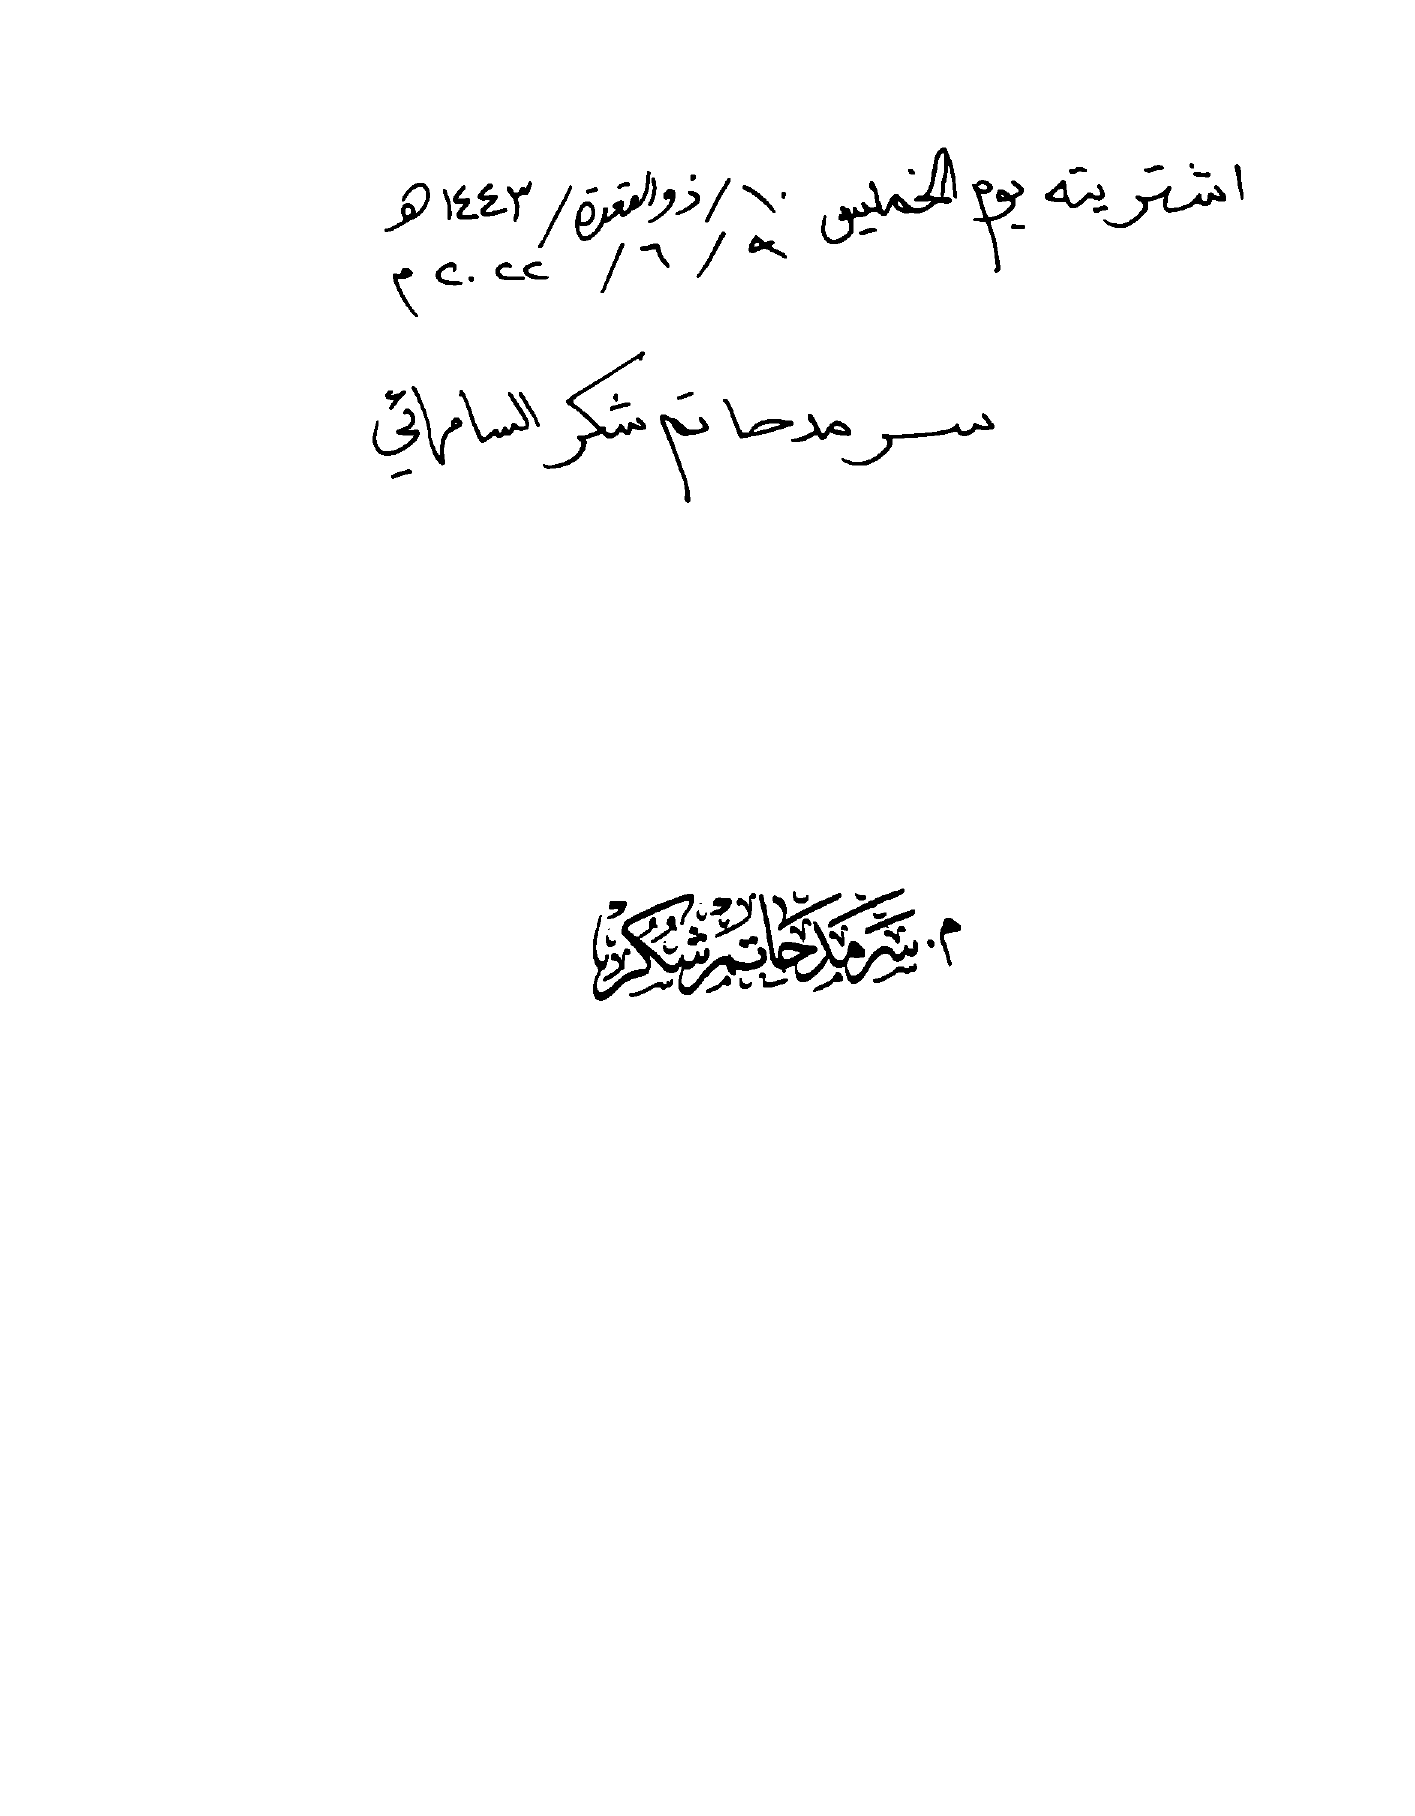 اشتريته يوم الخميس ١٠/ذوالقعدة/١٤٤٣ه
٩ / ٦ / ٢٠٢٢ م
سرمد حاتم شكر السامرائي
م. سَرْمَد حَاتَم شُكْر